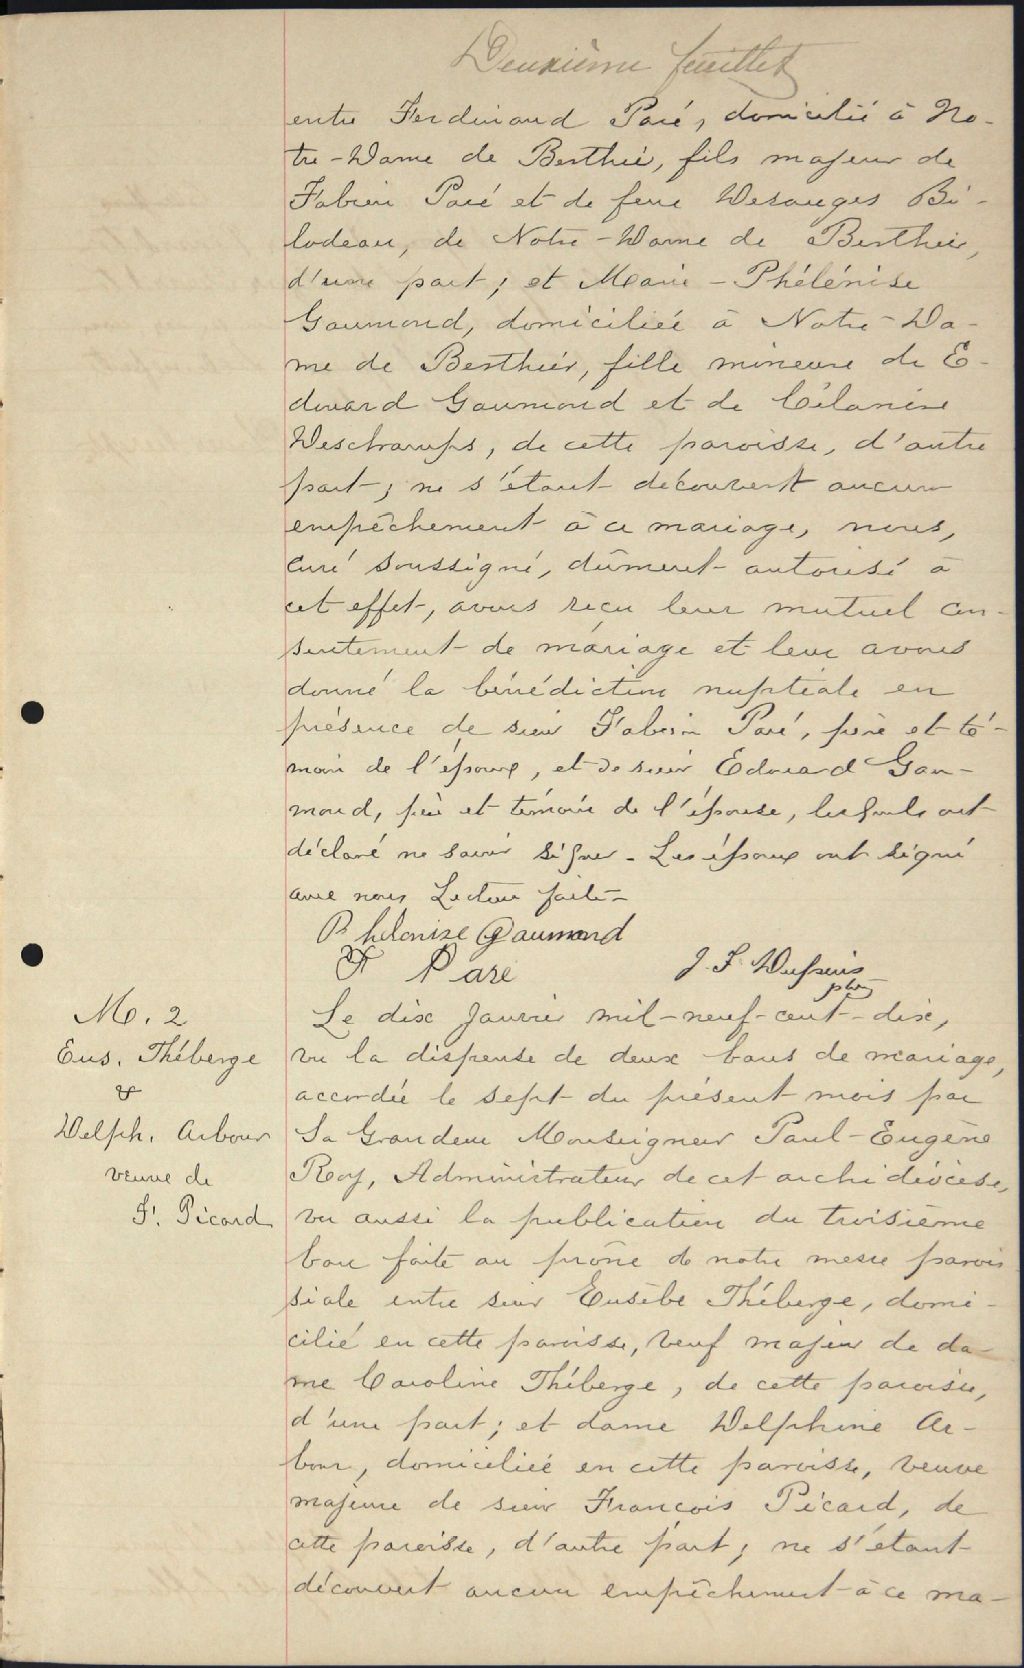 Deuxième feuillet
entre Ferdinand Paré, domicilié à No-
tre-Dame de Berthier, fils majeur de
Fabien Paré et de feue Desanges Bi-
lodeau, de Notre-Dame de Berthier,
d'une part; et Marie-Phélénise
Gaumond, domiciliée à Notre-Da-
me de Berthier, fille mineure de E-
douard Gaumond et de Célanire
Deschamps, de cette paroisse, d'autre
part; ne s'étant découvert aucun
empêchement à ce mariage, nous,
curé soussigné, dûment autorisé à
cet effet, avons reçu leur mutuel con-
sentement de mariage et leur avons
donné la bénédiction nuptiale en
présence de sieur Fabien Paré, père et té-
moin de l'époux, et de sieur Edouard Gau-
mond, père et témoin de l'épouse, lesquels ont
déclaré ne savoir signer. Les époux ont signé
avec nous Lecture faite-
Phelonise Gaumond
F Pare
J. F. Dufresis ptre
M. 2
Eus. Théberge
&
Delph. Arbour
veuve de
F. Picard
Le dix Janvier mil-neuf-cent-dix,
vu la dispense de deux bans de mariage,
accordée le sept du présent mois par
Sa Grandeur Monseigneur Paul-Eugène
Roy, Administrateur de cet archidiocèse,
vu aussi la publication du troisième
ban faite au prône de notre messe parois
siale entre sieur Eusèbe Théberge, domi-
cilié en cette paroisse, veuf majeur de da-
me Caroline Théberge, de cette paroisse,
d'une part; et dame Delphine Ar-
bour, domiciliée en cette paroisse, veuve
majeure de sieur François Picard, de
cette paroisse, d'autre part; ne s'étant
découvert aucun empêchement à ce ma-